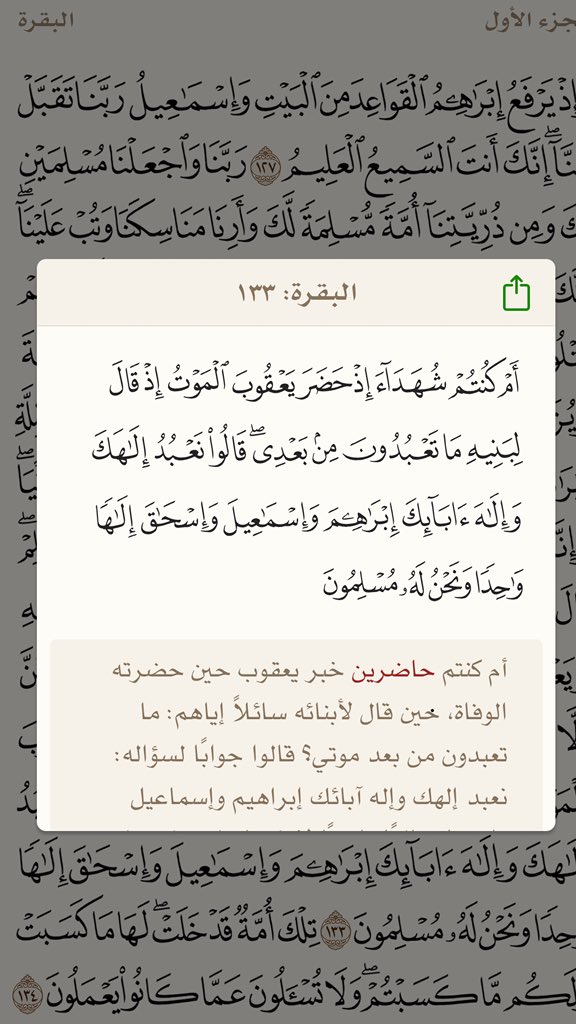 جزء الأول
البقرة
إِذْ يَرْفَعُ إِبْرَٰهِۦمُ ٱلْقَوَاعِدَ مِنَ ٱلْبَيْتِ وَإِسْمَٰعِيلُ رَبَّنَا تَقَبَّلْ
نَّآ ۖ إِنَّكَ أَنتَ ٱلسَّمِيعُ ٱلْعَلِيمُ ١٢٧ رَبَّنَا وَٱجْعَلْنَا مُسْلِمَيْنِ
كَ وَمِن ذُرِّيَّتِنَآ أُمَّةً مُّسْلِمَةً لَّكَ وَأَرِنَا مَنَاسِكَنَا وَتُبْ عَلَيْنَآ ۖ
البقرة: ١٣٣
أَمْ كُنتُمْ شُهَدَآءَ إِذْ حَضَرَ يَعْقُوبَ ٱلْمَوْتُ إِذْ قَالَ
لِبَنِيهِ مَا تَعْبُدُونَ مِنۢ بَعْدِى ۖ قَالُوا۟ نَعْبُدُ إِلَٰهَكَ
وَإِلَٰهَ ءَابَآئِكَ إِبْرَٰهِۦمَ وَإِسْمَٰعِيلَ وَإِسْحَٰقَ إِلَٰهًا
وَٰحِدًا وَنَحْنُ لَهُۥ مُسْلِمُونَ
أم كنتم حاضرين خبر يعقوب حين حضرته
الوفاة، حين قال لأبنائه سائلاً إياهم: ما
تعبدون من بعد موتي؟ قالوا جوابًا لسؤاله:
نعبد إلهك وإله آبائك إبراهيم وإسماعيل
لَٰهَكَ وَإِلَٰهَ ءَابَآئِكَ إِبْرَٰهِۦمَ وَإِسْمَٰعِيلَ وَإِسْحَٰقَ إِلَٰهًا
حِدًا وَنَحْنُ لَهُۥ مُسْلِمُونَ ١٣٣ تِلْكَ أُمَّةٌ قَدْ خَلَتْ ۖ لَهَا مَا كَسَبَتْ
لَكُم مَّا كَسَبْتُمْ ۖ وَلَا تُسْـَٔلُونَ عَمَّا كَانُوا۟ يَعْمَلُونَ ١٣٤